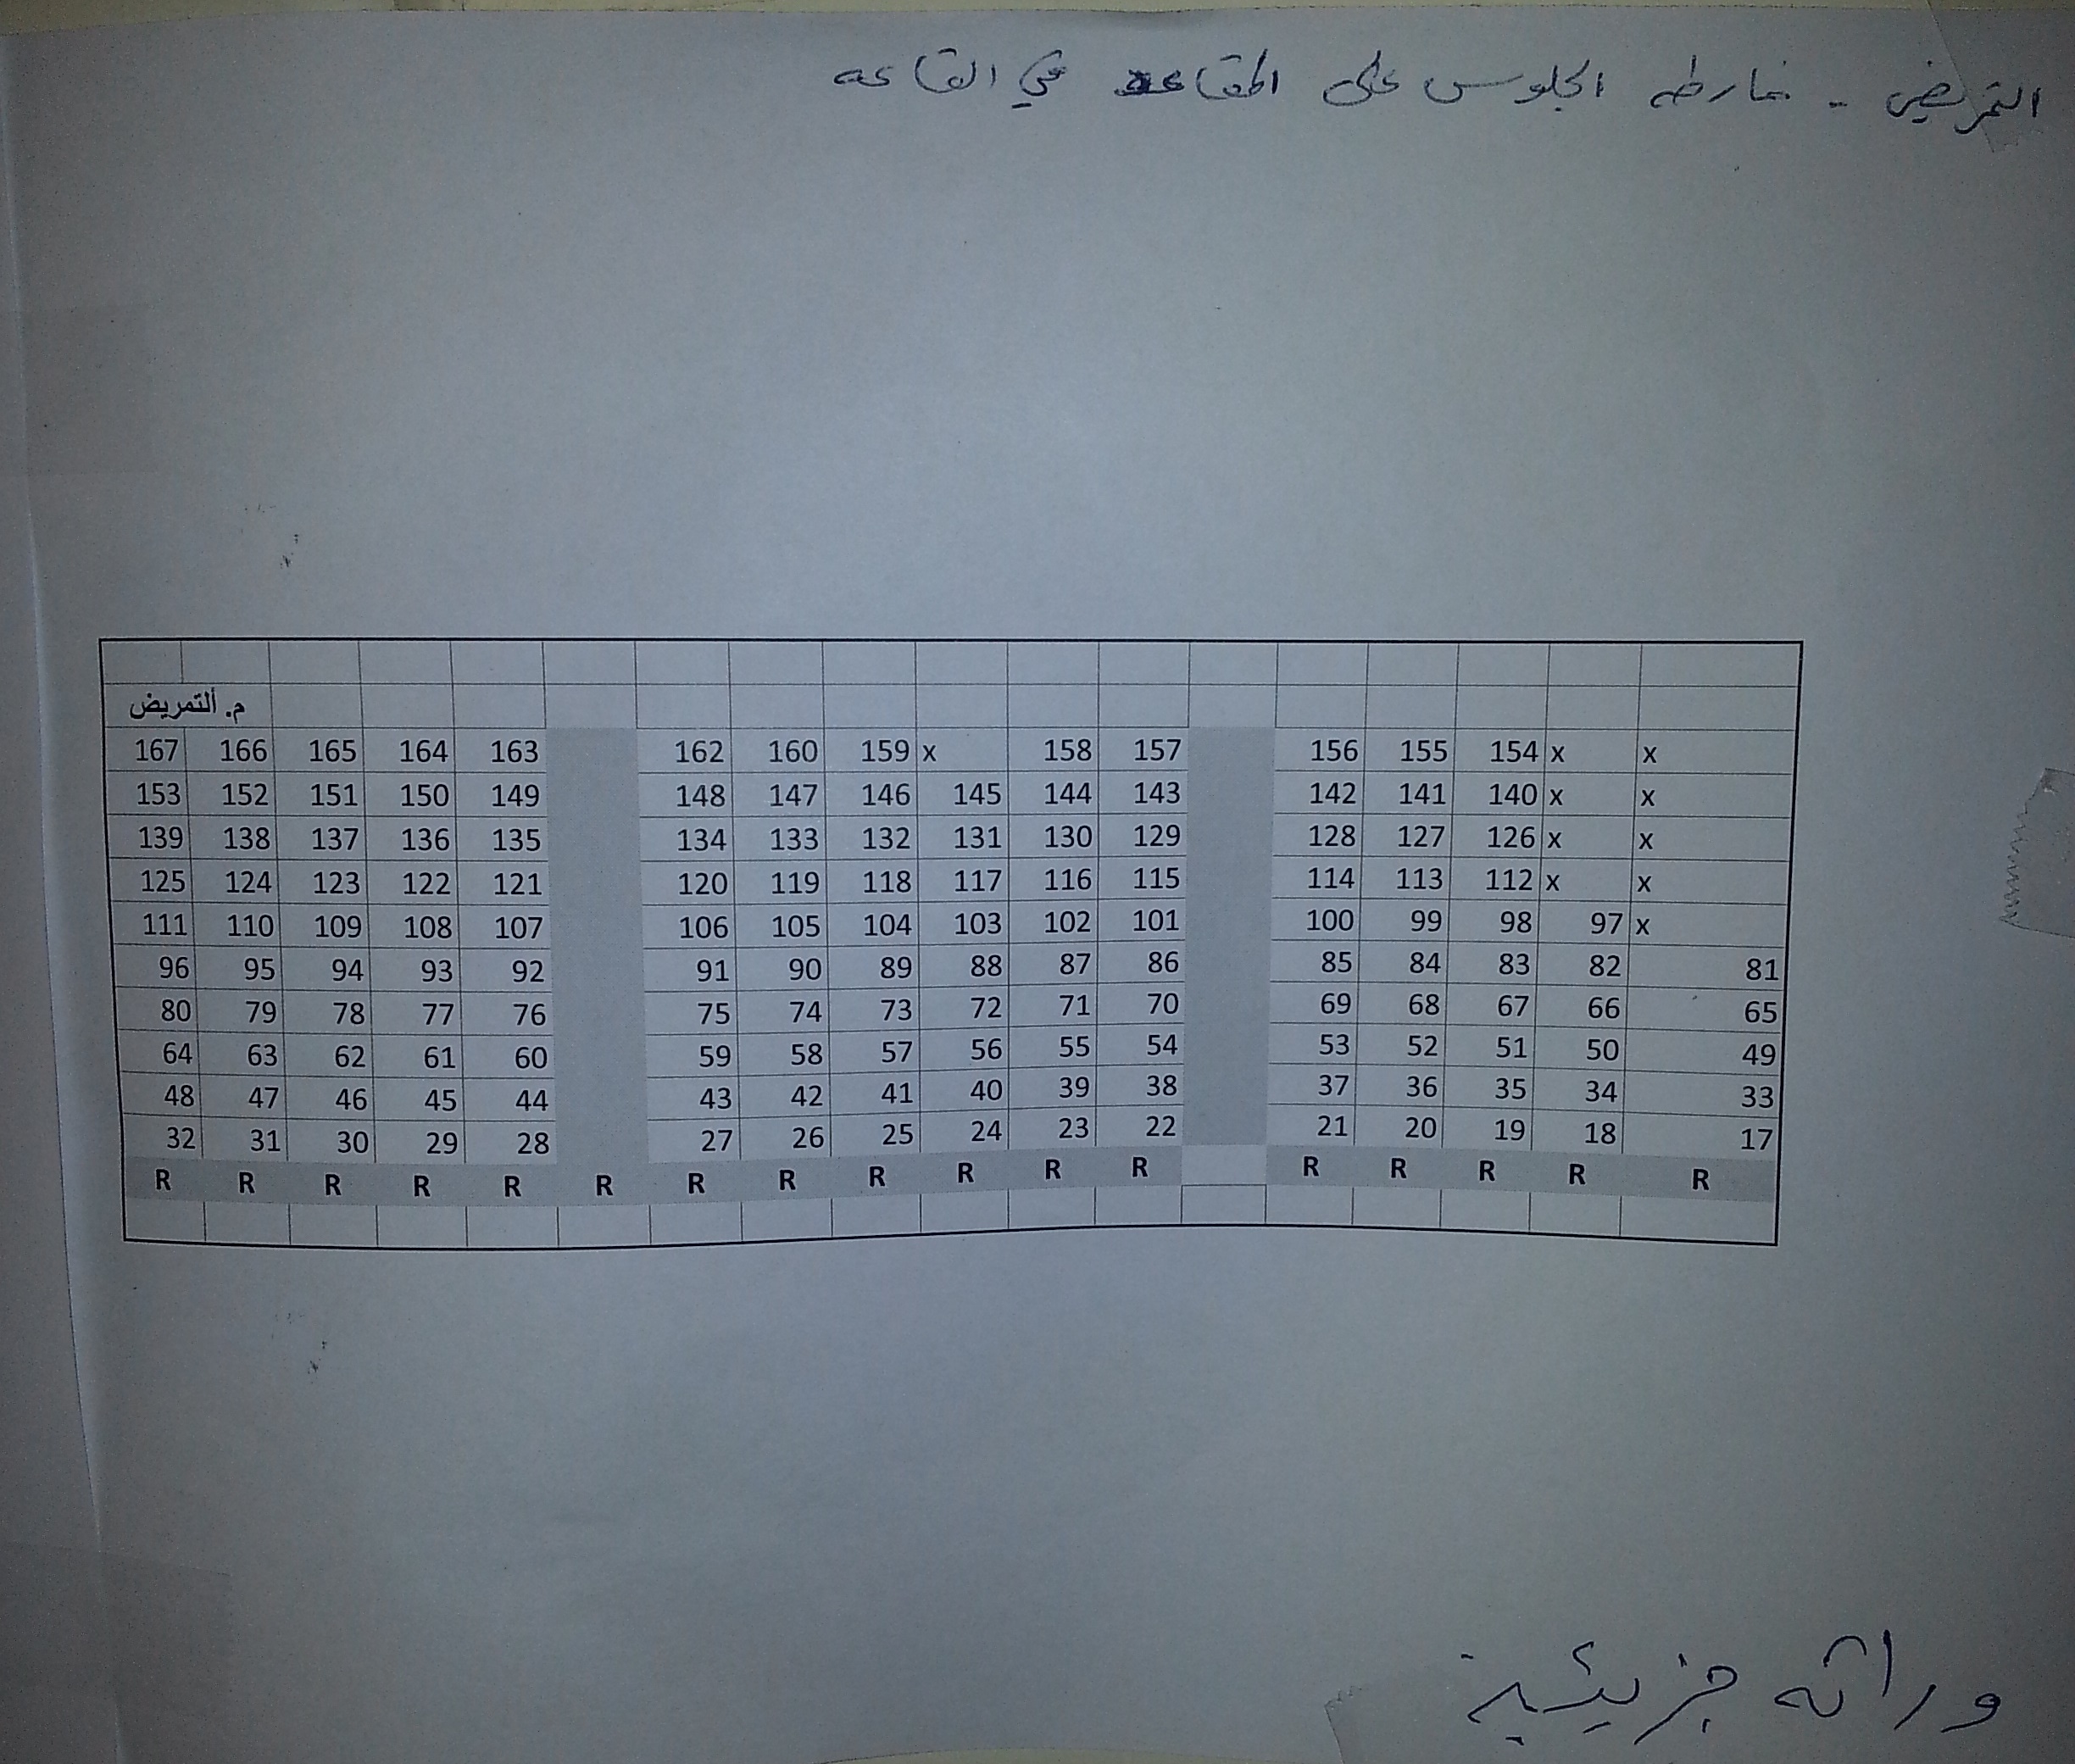 التمريض - خارطه الجلوس على المقاعد في القاعه
م. ألتمريض
167 166 165 164 163 162 160 159 x 158 157 156 155 154 x x
153 152 151 150 149 148 147 146 145 144 143 142 141 140 x x
139 138 137 136 135 134 133 132 131 130 129 128 127 126 x x
125 124 123 122 121 120 119 118 117 116 115 114 113 112 x x
111 110 109 108 107 106 105 104 103 102 101 100 99 98 97 x
96 95 94 93 92 91 90 89 88 87 86 85 84 83 82 81
80 79 78 77 76 75 74 73 72 71 70 69 68 67 66 65
64 63 62 61 60 59 58 57 56 55 54 53 52 51 50 49
48 47 46 45 44 43 42 41 40 39 38 37 36 35 34 33
32 31 30 29 28 27 26 25 24 23 22 21 20 19 18 17
R R R R R R R R R R R R R R R R R
وراثه جزيئية